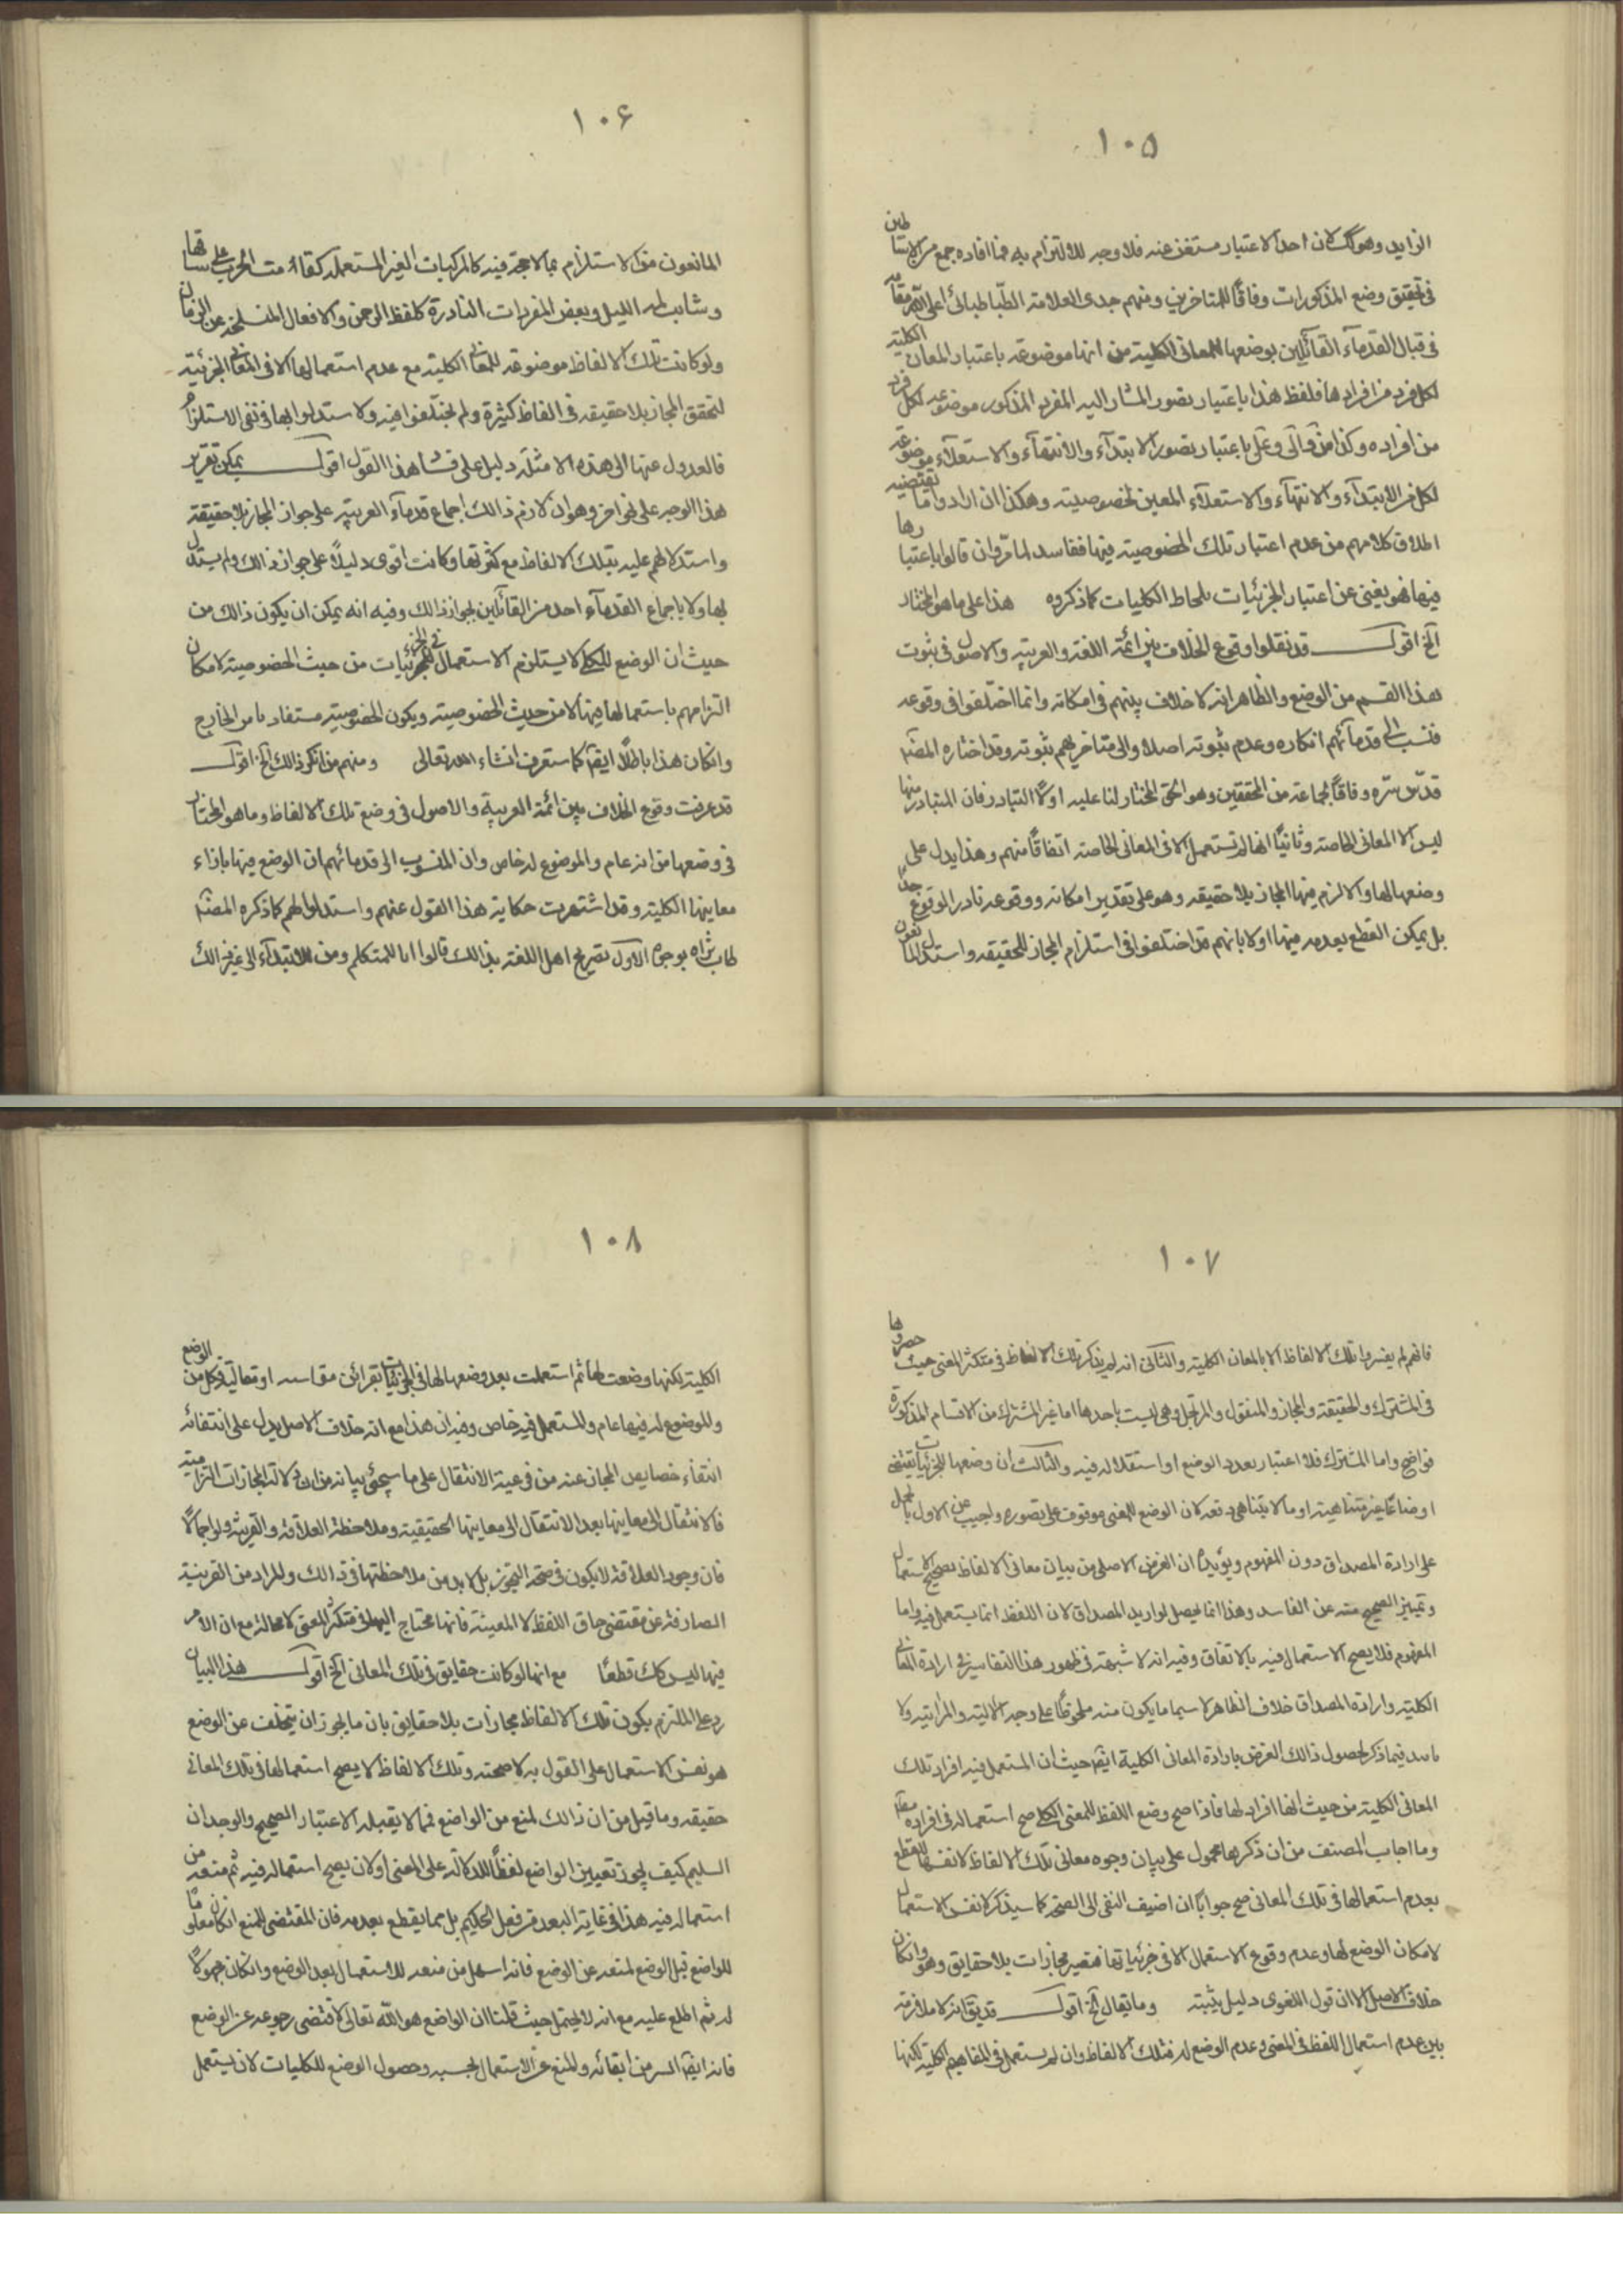 ١٠٥
الزايد وهو كك لان احد الاعتبار مستغن عنه فلا وجه للالتزام به فما افاده جمع من الاساطين
في تحقيق وضع المذكورات وفاقًا للمتاخرين ومنهم جدى العلامة الطباطبائي اعلى الله مقامه
في قبال القدمآء القآئلين بوضعها للمعانى الكلية من انها موضوعة باعتبار المعانى الكلية
لكل فرد من افرادها فلفظ هذا باعتبار تصور المشار اليه المفرد المذكور موضوعه لكل فرد
من افراده وكذا من والى وعلى باعتبار تصور الابتدآء والانتهآء والاستعلآء موضوعة
لكل من الابتدآء والانتهآء والاستعلآء المعين لخصوصيته وهكذا ان ارادوا ما تقتضيه
اطلاق كلامهم من عدم اعتبار تلك الخصوصية فيها ففاسد لما مر وان قالوا باعتبارها
فيها فهو يغنى عن اعتبار الجزئيات بلحاظ الكليات كما ذكروه هذا على ما هو المختار
آلخ اقول قد نقلوا وقوع الخلاف بين ائمة اللغة والعربية والاصول في ثبوت
هذا القسم من الوضع والظاهر انه لا خلاف بينهم في امكانه وانما اختلفوا في وقوعه
فنسب الى قدمآئهم انكاره وعدم ثبوته اصلا والى متاخريهم ثبوته وقد اختاره المصنف
قدّس سرّه وفاقًا لجماعة من المحققين وهو الحق المختار لنا عليه اولًا التبادر فان المتبادر منها
ليس الا المعانى الخاصة وثانيًا انها لم تستعمل الا في المعانى الخاصة اتفاقًا منهم وهذا يدل على
وضعها لها والا لزم فيها المجاز بلا حقيقه وهو على تقدير امكانه ووقوعه نادر الوقوع جدًا
بل يمكن القطع بعدمه فيها اولا بانهم قد اختلفوا في استلزام المجاز للحقيقه واستدل المانعون
١٠۶
المانعون من الاستلزام بما لا حجة فيه كالمركبات الغير المستعمله كقامت الحرب على ساقها
وشابت لمة الليل وبعض المفردات النادرة كلفظ الرحمن والافعال المنسلخة عن الزمان
ولو كانت تلك الالفاظ موضوعه للمعانى الكلية مع عدم استعمالها الا في المعانى الجزئية
لتحقق المجاز بلا حقيقه في الفاظ كثيرة ولم يختلفوا فيه ولا ستدلوا بها في نفى الاستلزام
فالعدول عنها الى هذه الامثلة دليل على فساد هذا القول اقول يمكن تقرير
هذا الوجه على نحو اخر وهو ان لازم ذالك اجماع قدمآء العربية على جواز المجاز بلا حقيقة
واستدلالهم عليه بتلك الالفاظ مع كثرتها وكانت اقوى دليلًا على جواز ذالك ولم يستدل
بها ولا باجماع القدمآء احد من القآئلين بجواز ذالك وفيه انه يمكن ان يكون ذالك من
حيث ان الوضع للكلى لا يستلزم الاستعمال في الجزئيات من حيث الخصوصية لامكان
التزامهم باستعمالها فيها لا من حيث الخصوصية ويكون الخصوصية مستفاد بامر الخارج
وان كان هذا باطلًا ايضًا كما ستعرف انشاء الله تعالى ومنهم من انكر ذالك آلخ اقول
قد عرفت وقوع الخلاف بين ائمة العربية والاصول في وضع تلك الالفاظ وما هو المختار
في وضعها من انه عام والموضوع له خاص وان المنسوب الى قدمائهم ان الوضع فيها بازاء
معاينها الكلية وقد اشتهرت حكاية هذا القول عنهم واستدل لهم كما ذكره المصنف
طاب ثراه بوجوه الاول تصريح اهل اللغة بذالك قالوا انا للمتكلم ومن للابتدآء الى غير ذالك
١٠٧
فانهم لم يفسروا تلك الالفاظ الا بالمعانى الكلية والثانى انه لم يذكر تلك الالفاظ في متكثر المعنى حيث حصروها
في المشترك والحقيقة والمجاز والمنقول والمرتجل وهى ليست باحدها اما غير المشترك من الاقسام المذكورة
فواضح واما المشترك فلا اعتبار بعدد الوضع او استقلاله فيه والثالث ان وضعها للجزئيات يقتضى
اوضاعًا غير متناهية او ما لا يتناهى دفعه لان الوضع للمعنى موقوف على تصوره واجيب عن الاول بالحمل
على ارادة المصداق دون المفهوم ويؤيده ان الغرض الاصلى من بيان معانى الالفاظ تصحيح الاستعمال
وتمييز الصحيح منه عن الفاسد وهذا انما يحصل لو اريد المصداق لان اللفظ انما يستعمل فيه واما
المفهوم فلا يصح الاستعمال فيه بالاتفاق وفيه انه لا شبهة في ظهور هذا التفاسير في ارادة المعانى
الكلية وارادة المصداق خلاف الظاهر لا سيما ما يكون منه ملحوظًا على وجه الالية والمراتية ولا
باسد فيما ذكر لحصول ذالك الغرض بارادة المعانى الكلية ايضًا حيث ان المستعمل فيه افراد تلك
المعانى الكلية من حيث انها افراد لها فاذا صح وضع اللفظ للمعنى الكلى صح استعماله في افراده
وما اجاب المصنف من ان ذكرها محمول على بيان وجوه معانى تلك الالفاظ لا نفسها للقطع
بعدم استعمالها في تلك المعانى صح جوابًا ان اضيف النفى الى الصحة كما سيذكر لا نفس الاستعمال
لامكان الوضع لها وعدم وقوع الاستعمال الا في جزئياتها فتصير مجازات بلا حقايق وهو وان كان
خلاف الاصل الا ان قول اللغوى دليل يثبته وما يقال آلخ اقول قد يق انه لا ملازمة
بين عدم استعمال اللفظ في المعنى وعدم الوضع له فتلك الالفاظ وان لم يستعمل في المفاهيم الكلية لكنها
١٠٨
الكلية لكنها وضعت لها ثم استعملت بعد وضعها لها في الجزئيات بقرائن مقامية او مقالية فكل من الوضع
والموضوع له فيها عام والمستعمل فيه خاص وفيه ان هذا مع انه خلاف الاصل يدل على انتفائه
انتفاء خصايص المجاز عنه من فرعية الانتقال على ما سيجئ بيانه من ان دلالة المجازات التزامية
فالانتقال الى معاينها بعد الانتقال الى معاينها الحقيقية وملاحظة العلاقة والقرينة ولو اجمالًا
فان وجود العلاقة لا يكون في صحة التجوز بل لا بد من ملاحظتها في ذالك والمراد من القرينة
الصارفة عن مقتضى حاق اللفظ لا المعينة فانها محتاج اليها في متكثر المعنى لا محالة مع ان الامر
فيها ليس كك قطعًا مع انها لو كانت حقايق في تلك المعانى آلخ اقول هذا البيان
رد على الملتزم بكون تلك الالفاظ مجازات بلا حقايق بان ما يجوز ان يتخلف عن الوضع
هو نفس الاستعمال على القول به لا صحته وتلك الالفاظ لا يصح استعمالها في تلك المعانى
حقيقه وما قيل من ان ذالك لمنع من الواضع فمما لا يقبله الاعتبار الصحيح والوجدان
السليم كيف يجوز تعيين الواضع لفظًا للدلالة على المعنى اولان يصح استعماله فيه ثم منعه من
استعماله فيه هذا في غاية البعد من فعل الحكيم بل مما يقطع بعدمه فان المقتضى للمنع ان كان معلومًا
للواضع قبل الوضع لمنعه عن الوضع فانه اسهل من منعه للاستعمال بعد الوضع وان كان مجهولًا
له ثم اطلع عليه مع انه لا يحتمل حيث قلنا ان الواضع هو الله تعالى لاقتضى رجوعه عن الوضع
فانه ايضًا اسر من ابقائه والمنع عن الاستعمال بحسبه وحصول الوضع للكليات لان يستعمل